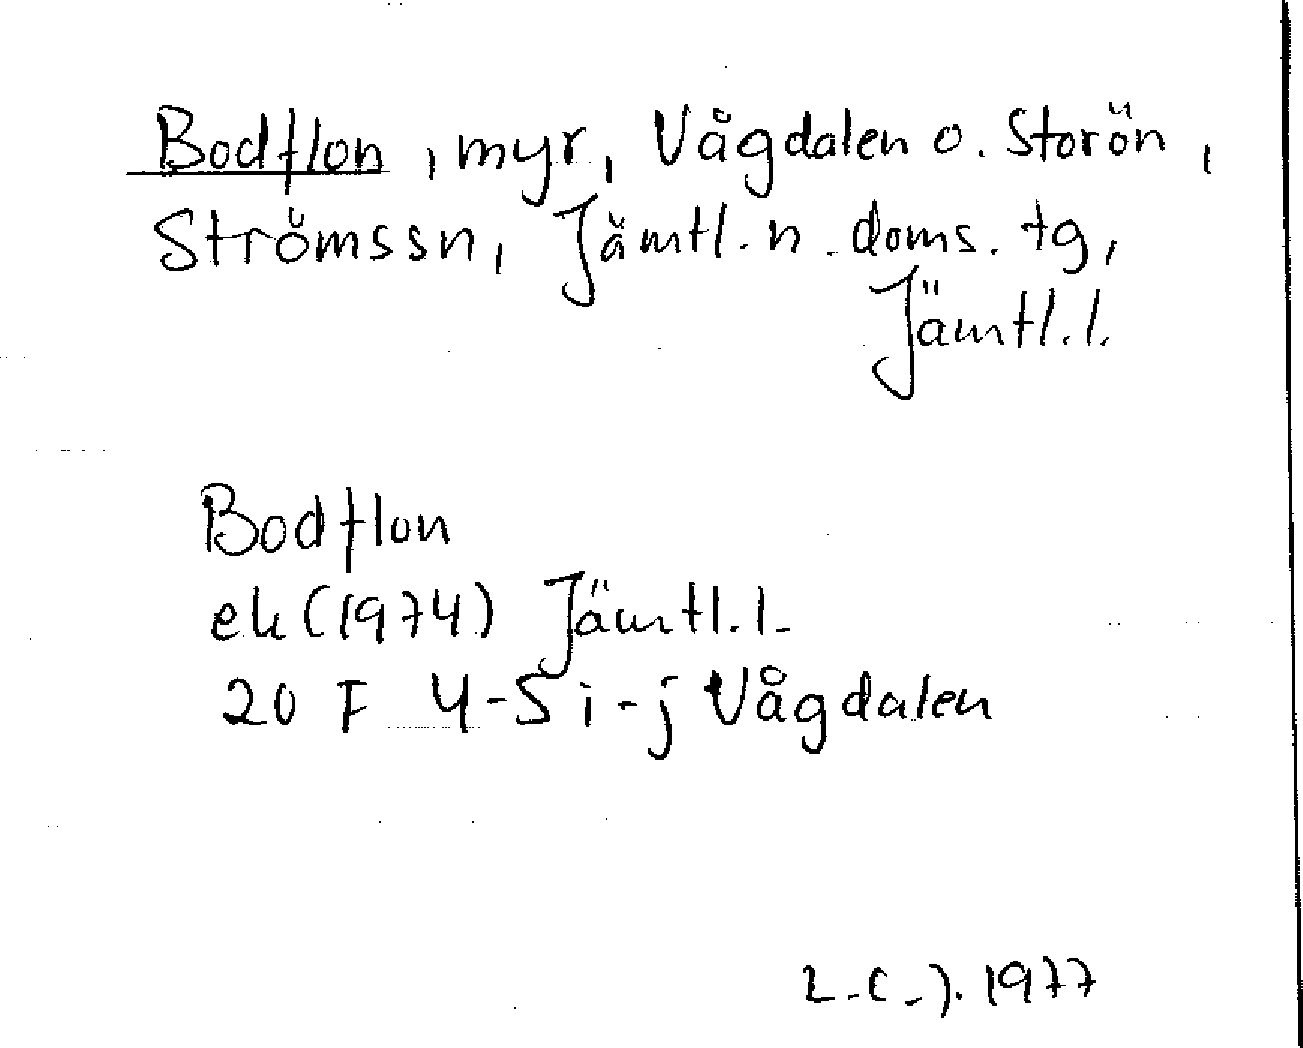 Bodflon, myr, Vågdalen o. Storön,
Strömssn, Jämtl. n. doms. tg,
Jämtl. l.
Bodflon
ek (1974) Jämtl. l.
20 F 4-5 i-j Vågdalen
L-C-J. 1977